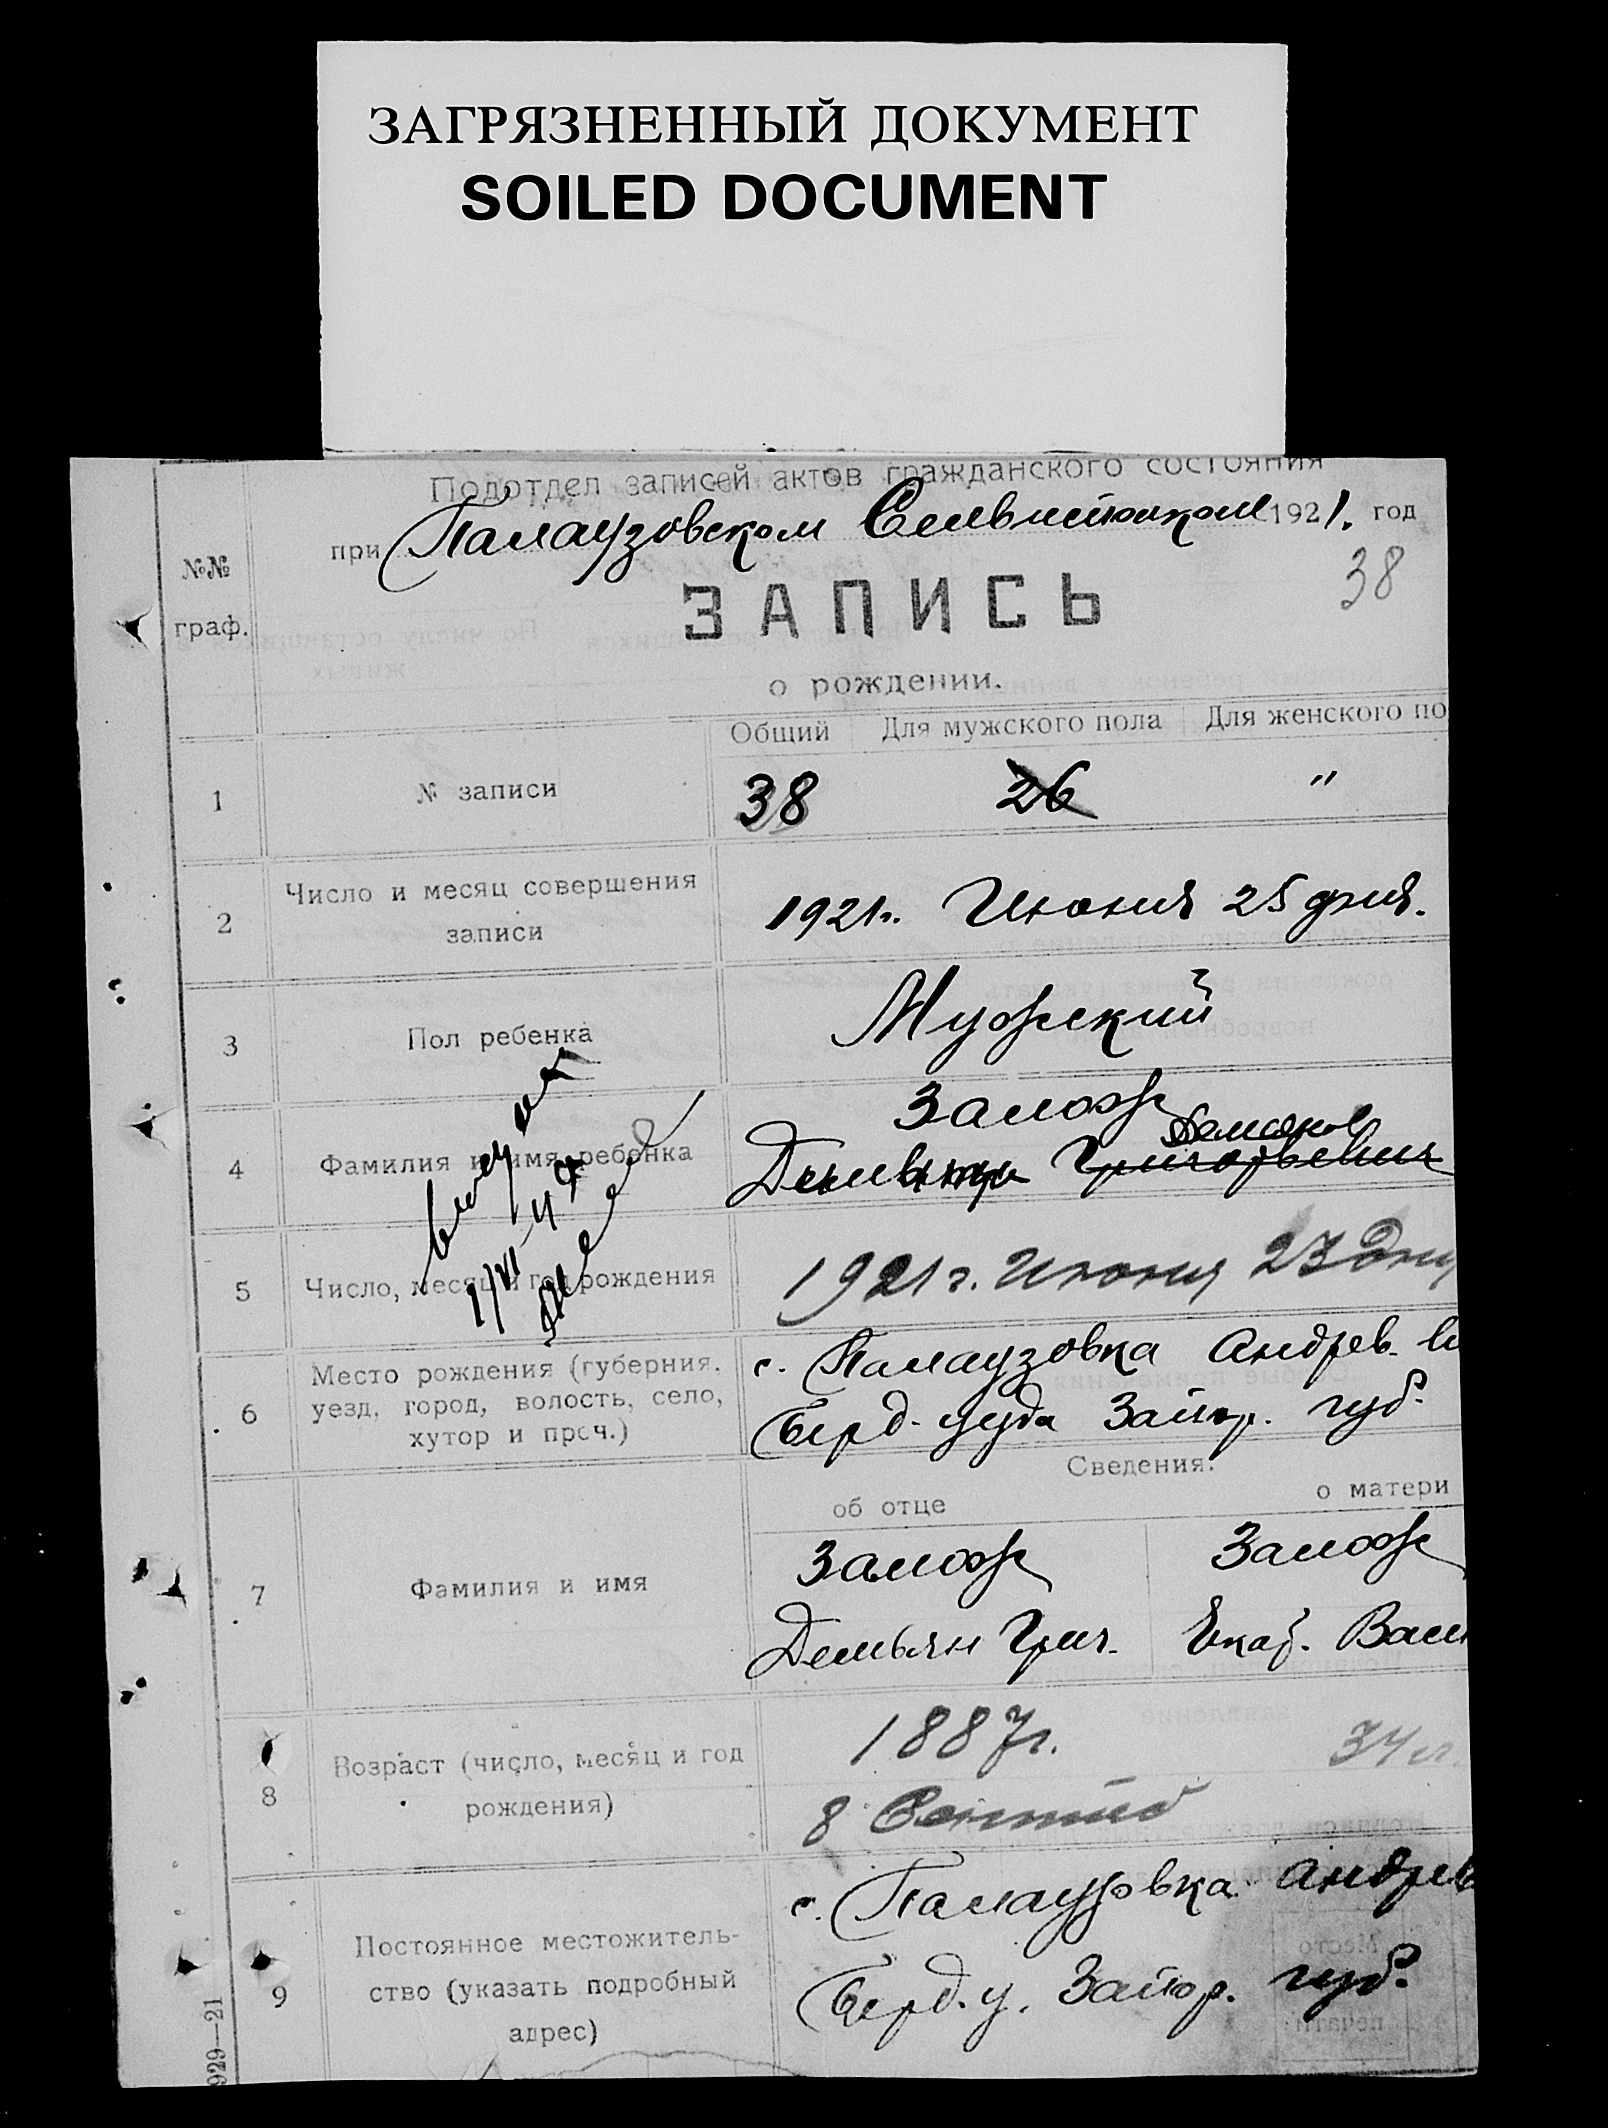 ЗАГРЯЗНЕННЫЙ ДОКУМЕНТ
SOILED DOCUMENT
Подотдел записей актов гражданского состояния
при Палаузовском 1921. год
№№
граф.
38
ЗАПИСЬ
о рождении.
Общий Для мужского пола Для женского по
1 № записи 38 26 "
2 Число и месяц совершения
записи
1921г. Июня 25 дня.
3 Пол ребенка Мужской
4 Фамилия и имя ребенка
Григорьевич
5 Число, месяц и год рождения 1921г. Июня 23 дня
6 Место рождения (губерния,
уезд, город, волость, село,
хутор и проч.)
с. Палаузовка Андрев. в
Берд. уезда Запор. губ.
Сведения:
об отце о матери
7 Фамилия и имя
Демьян Григ. Екат. Васи
8 Возраст (число, месяц и год
рождения)
1887г. 34 л.
8
9 Постоянное местожитель-
ство (указать подробный
адрес)
с. Палаузовка Андрев
Берд. у. Запор. губ.
929—21